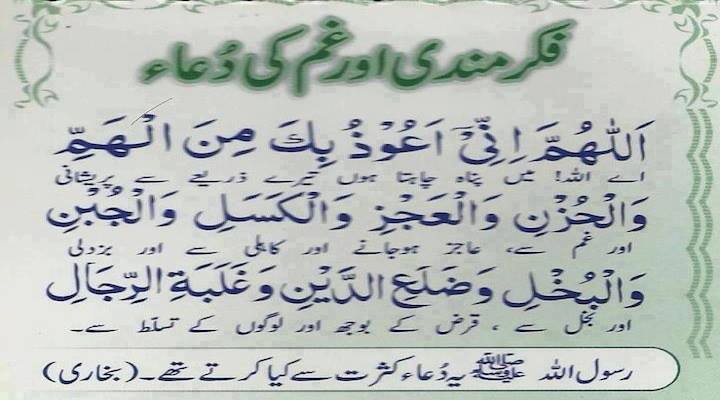 فکر مندی اور غم کی دُعاء
اَللّٰهُمَّ اِنِّیْۤ اَعُوْذُ بِكَ مِنَ الْهَمِّ
اے اللہ! میں پناہ چاہتا ہوں تیرے ذریعے سے پریشانی
وَالْحُزْنِ وَالْعَجْزِ وَالْكَسَلِ وَالْجُبْنِ
اور غم سے، عاجز ہوجانے اور کاہلی سے اور بزدلی
وَالْبُخْلِ وَضَلَعِ الدَّیْنِ وَغَلَبَةِ الرِّجَالِ
اور بخل سے، قرض کے بوجھ اور لوگوں کے تسلط سے۔
رسول اللہ ﷺ یہ دُعاء کثرت سے کیا کرتے تھے۔ (بخاری)